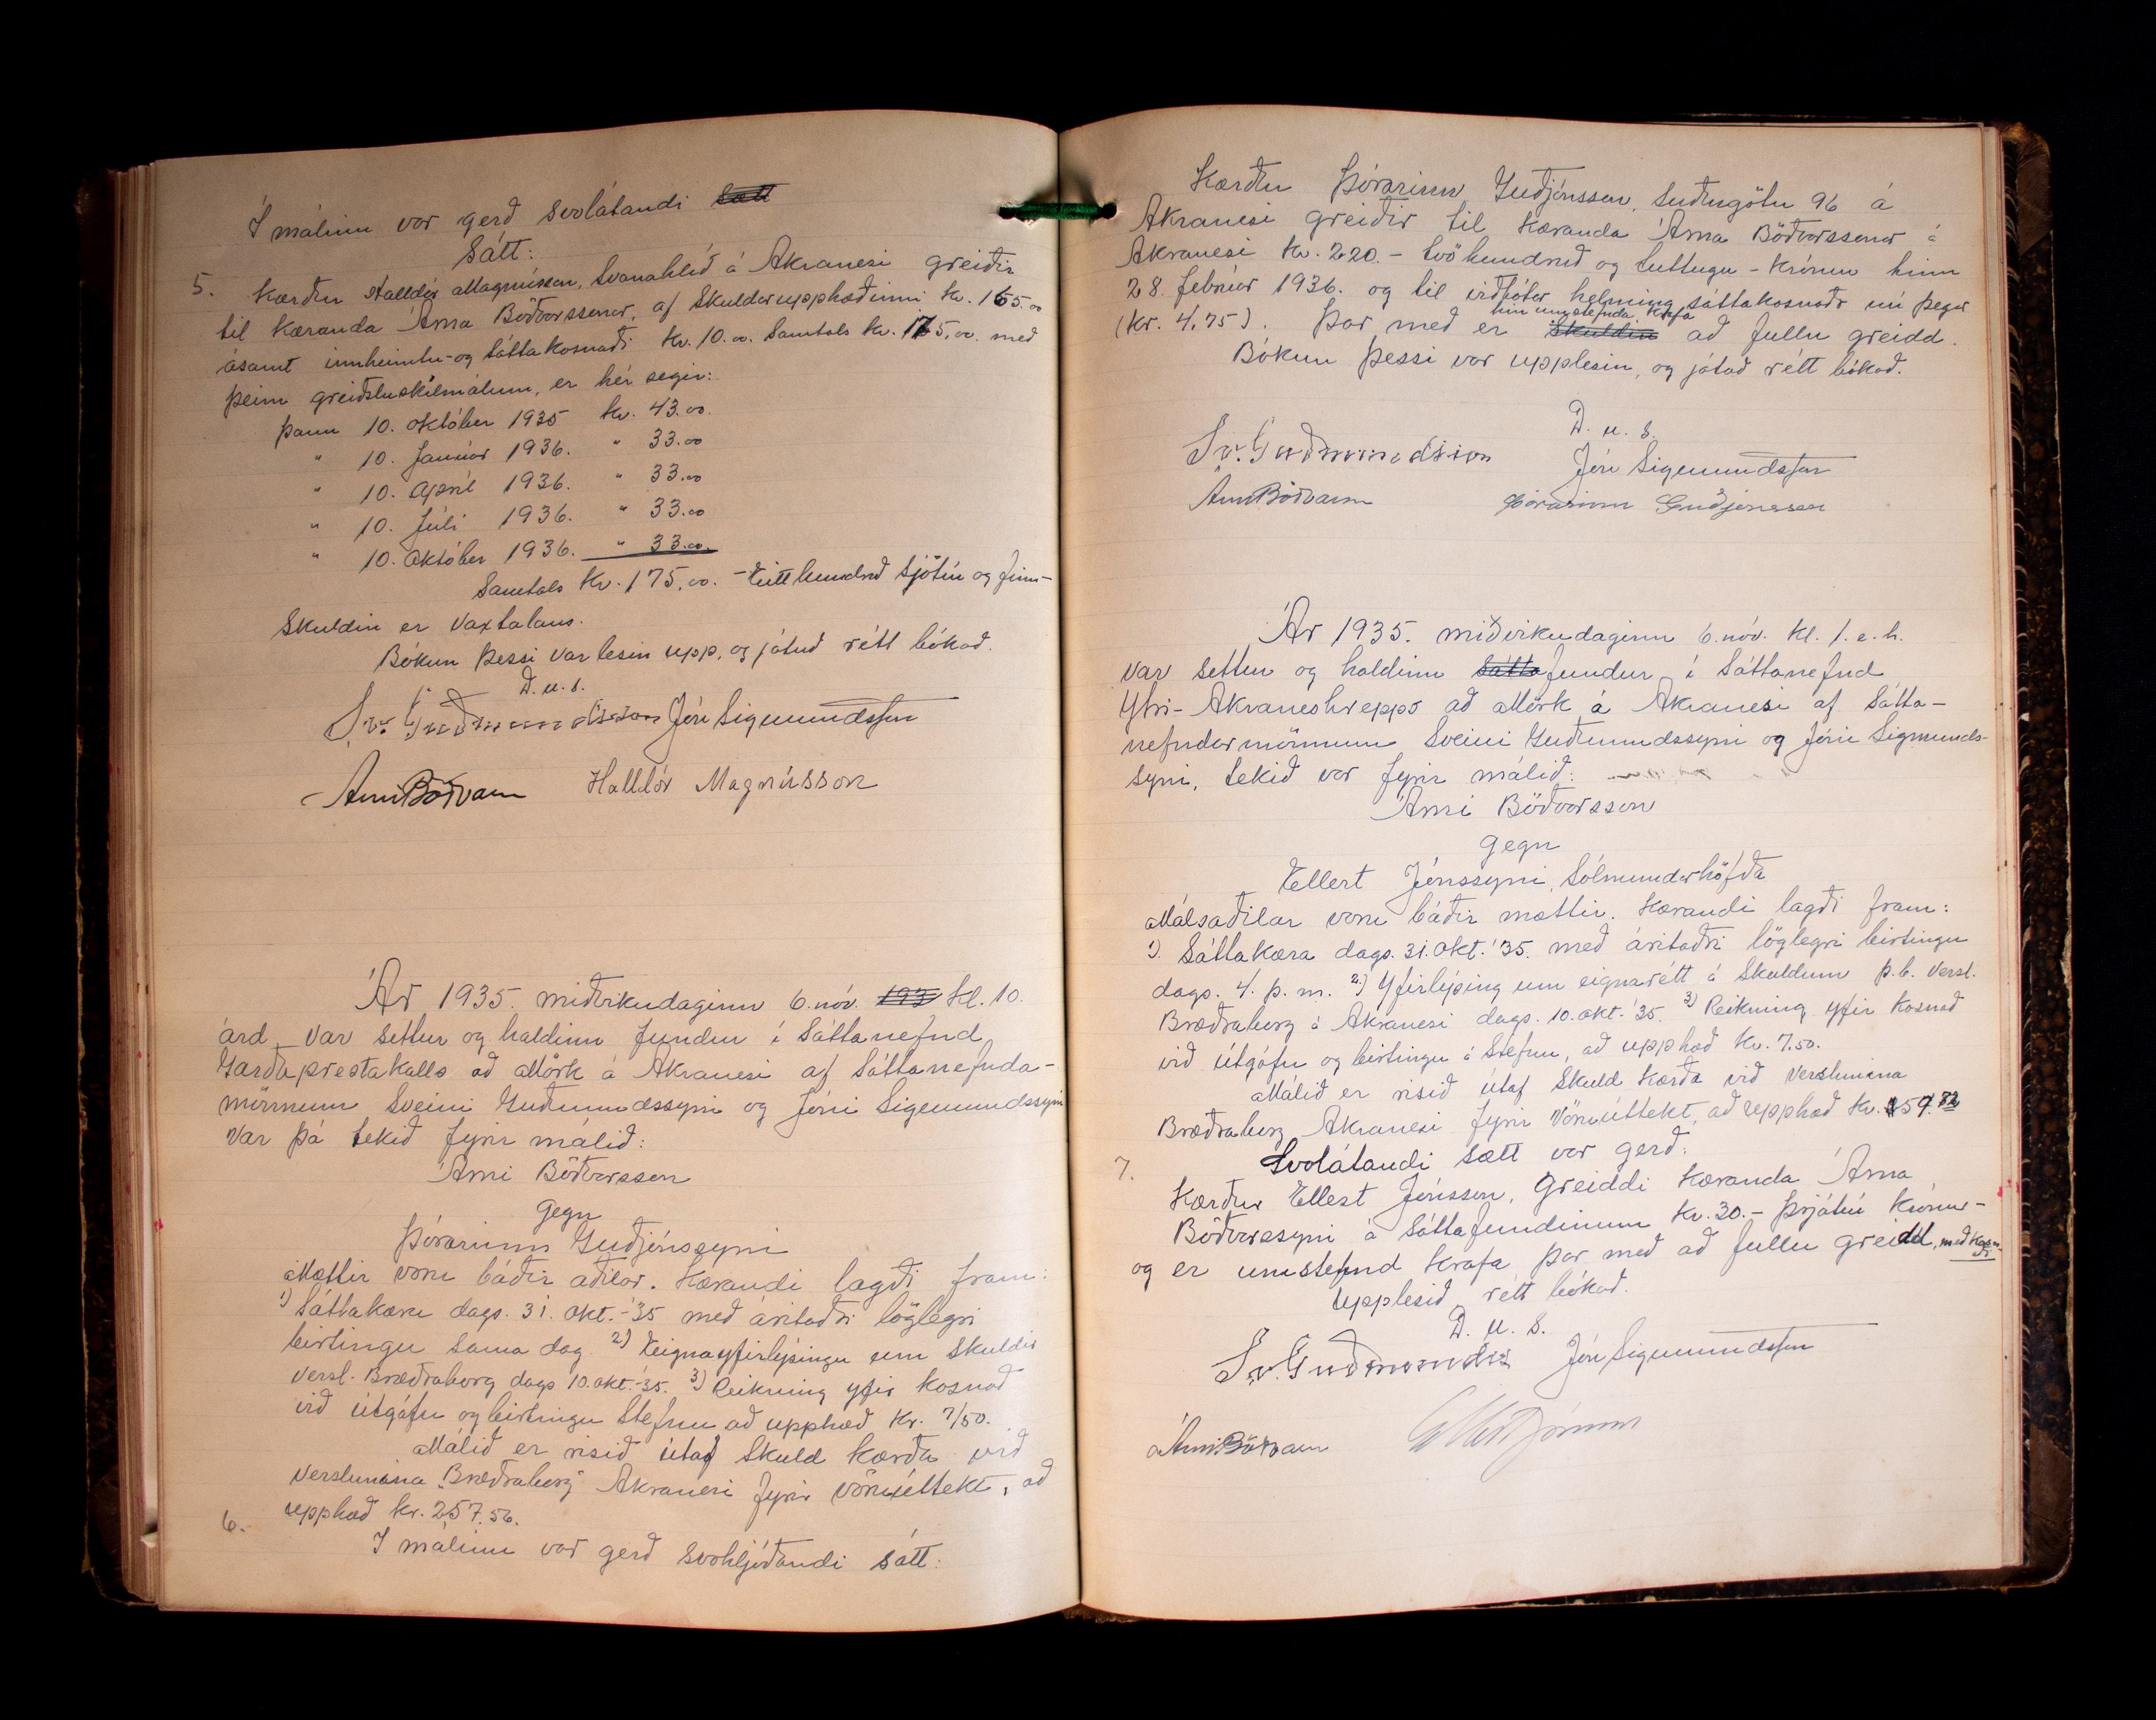 Í málinu var gerð svolátandi sætt
Sátt:
5. Kærður Halldór Magnússon, Svanahlíð á Akranesi greiðir
til kæranda Árna Böðvarssonar, af skuldarupphæðinni kr. 165.00
ásamt innheimtu- og sáttakosnaði kr. 10.00. Samtals kr. 175.00. með
þeim greiðsluskilmálum, er hér segir:
þann 10. október 1935 kr. 43.00.
" 10. Janúar 1936. " 33.00
" 10. Apríl 1936. " 33.00
" 10. Júlí 1936. " 33.00
" 10. Október 1936. " 33.00.
Samtals kr. 175.00. - Eitt hundrað sjötíu og fimm-
Skuldin er vaxtalaus.
Bókun þessi var lesin upp, og játuð rétt bókað.
D. u. s.
Sv. Guðmundsson Jón Sigmundsson
Árni Böðvarss Halldór Magnússon
Ár 1935. miðvikudaginn 6. nóv. 193 kl. 10.
árd. var settur og haldinn fundur í Sáttanefnd
Garðaprestakalls að Mörk á Akranesi af Sáttanefnda-
mönnum Sveini Guðmundssyni og Jóni Sigmundssyni
Var þá tekið fyrir málið:
Árni Böðvarsson
gegn
Þórarinn Guðjónssyni
Mættir voru báðir aðilar. Kærandi lagði fram:
1) Sáttakæru dags. 31. okt.-'35 með áritaðri löglegri
birtingu sama dag. 2) Eignayfirlýsingu um skuldir
versl. Bræðraborg dags 10. okt.-'35. 3) Reikning yfir kosnað
við útgáfu og birtingu stefnu að upphæð kr. 7/50.
Málið er risið útaf skuld kærða við
verslunina "Bræðraborg" Akranesi fyrir vöruúttekt, að
upphæð kr. 257.56.
6. Í málinu var gerð svohljóðandi sátt:
Kærður Þórarinn Guðjónsson, Suðurgötu 96 á
Akranesi greiðir til kæranda Árna Böðvarssonar á
Akranesi kr. 220.- tvö hundruð og tuttugu - krónur hinn
28. febrúar 1936. og til viðbótar helming sáttakosnaðr nú þegar
hin umstefnda krafa
(kr. 4,75). Þar með er skuldin að fullu greidd.
Bókun þessi var upplesin, og játað rétt bókað.
D. u. s.
Sv. Guðmundsson Jón Sigmundsson
Árni Böðvarss Þórarinn Guðjónsson
Ár 1935. miðvikudaginn 6. nóv. kl. 1. e.h.
var settur og haldinn sátta fundur í Sáttanefnd
Ytri-Akraneshrepps að Mörk á Akranesi af Sátta-
nefndarmönnum Sveini Guðmundssyni og Jóni Sigmunds-
syni, tekið var fyrir málið:
Árni Böðvarsson
gegn
Ellert Jónssyni, Sólmundarhöfða
Málsaðilar voru báðir mættir. Kærandi lagði fram:
1). Sáttakæra dags. 31. okt. '35. með áritaðri löglegri birtingu
dags. 4. þ. m. 2) Yfirlýsing um eignarétt á skuldum þ.b. versl.
Bræðraborg á Akranesi dags. 10. okt. '35. 3) Reikning yfir kosnað
við útgáfu og birtingu á stefnu, að upphæð kr. 7.50.
Málið er risið útaf skuld kærða við verslunina
Bræðraborg Akranesi fyrir vöruúttekt, að upphæð kr. 59.82
Svolátandi sætt var gerð:
7. Kærður Ellert Jónsson, greiddi kæranda Árna
Böðvarssyni á sáttafundinum kr. 30.- þrjátíu krónur-
og er umstefnd krafa þar með að fullu greidd, með kosn-
aði
Upplesið, rétt bókað.
D. u. s.
Sv. Guðmundss Jón Sigmundsson
Árni Böðvarss Ellert Jónsson